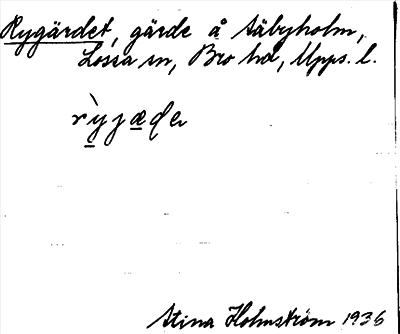 Rygärdet, gärde å Säbyholm,
Lossa sn, Bro hd, Upps. l.
rỳjæde
Stina Holmström 1936